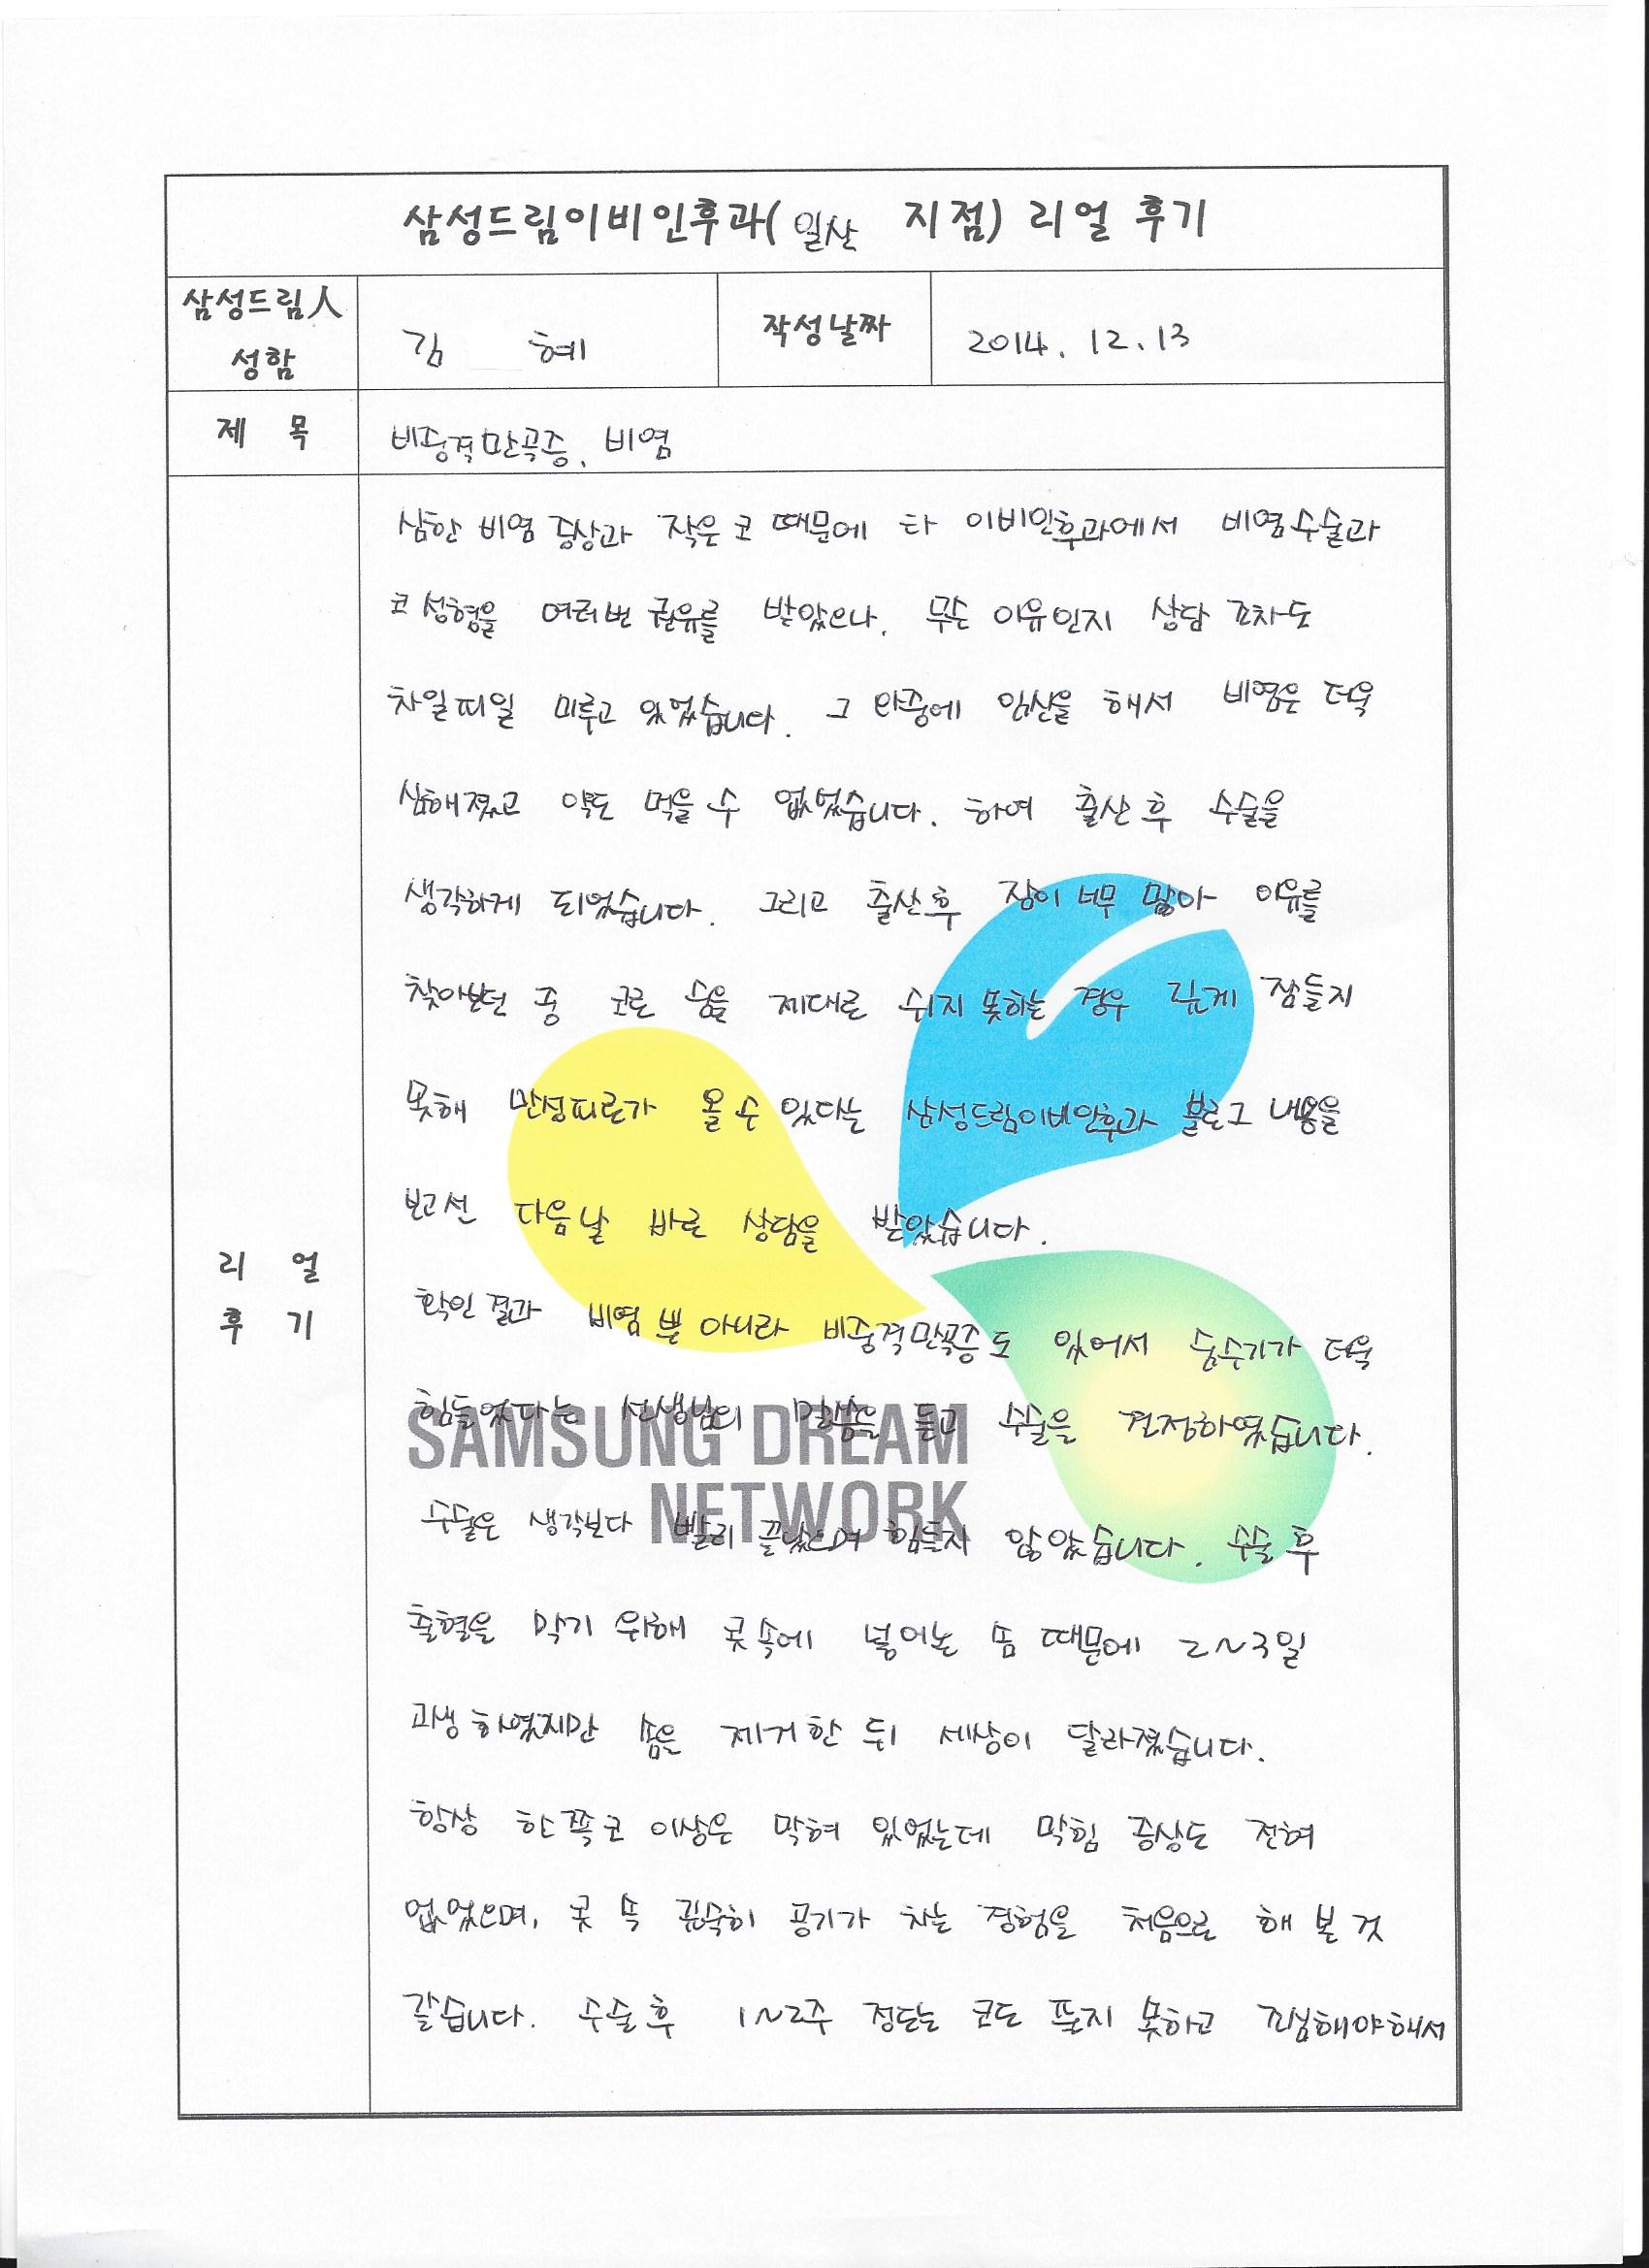 삼성드림이비인후과(일산 지점) 리얼 후기
삼성드림人
성함
김 혜
작성날짜
2014. 12. 13
제 목
비중격만곡증, 비염
심한 비염 증상과 작은 코 때문에 타 이비인후과에서 비염수술과
코 성형을 여러번 권유를 받았으나, 무슨 이유인지 상담 조차도
차일피일 미루고 있었습니다. 그 와중에 임신을 해서 비염은 더욱
심해졌고 약도 먹을 수 없었습니다. 하여 출산 후 수술을
생각하게 되었습니다. 그리고 출산후 잠이 너무 많아 이유를
찾아보던 중 코로 숨을 제대로 쉬지 못하는 경우 깊게 잠들지
못해 만성피로가 올 수 있다는 삼성드림이비인후과 블로그 내용을
보고선 다음날 바로 상담을 받았습니다.
리 얼
후 기
확인 결과 비염 뿐 아니라 비중격만곡증도 있어서 숨쉬기가 더욱
힘들었다는 선생님의 말씀을 듣고 수술을 결정하였습니다.
SAMSUNG DREAM
NETWORK
수술은 생각보다 빨리 끝났으며 힘들지 않았습니다. 수술 후
출혈을 막기 위해 콧속에 넣어논 솜 때문에 2~3일
고생 하였지만 솜을 제거한 뒤 세상이 달라졌습니다.
항상 한쪽코 이상은 막혀 있었는데 막힘 증상도 전혀
없었으며, 콧 속 깊숙히 공기가 차는 경험을 처음으로 해 본 것
같습니다. 수술 후 1~2주 정도는 코도 풀지 못하고 조심해야해서